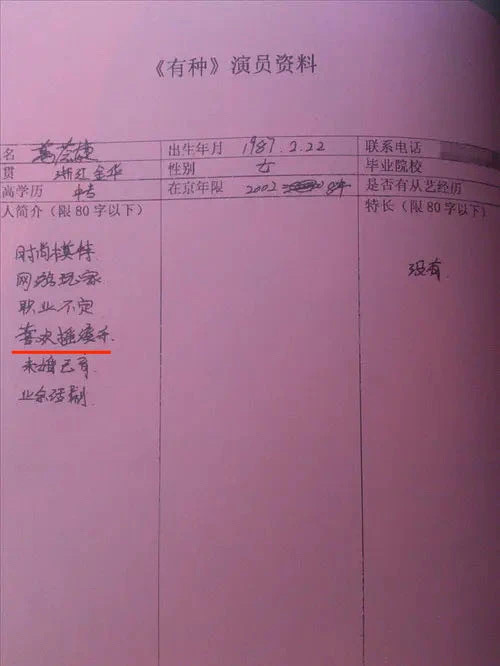 《有种》演员资料
名 葛荟婕 出生年月 1987.2.22 联系电话
贯 浙江金华 性别 女 毕业院校
高学历 中专 在京年限 2002 是否有从艺经历
人简介（限80字以下） 特长（限80字以下）
时尚模特
网游玩家 没有
职业不定
喜欢摇滚乐
未婚已育
业余话剧